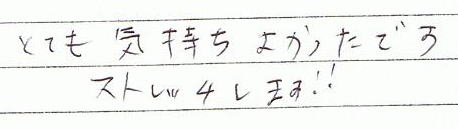 とても気持ちよかったです
ストレッチします!!